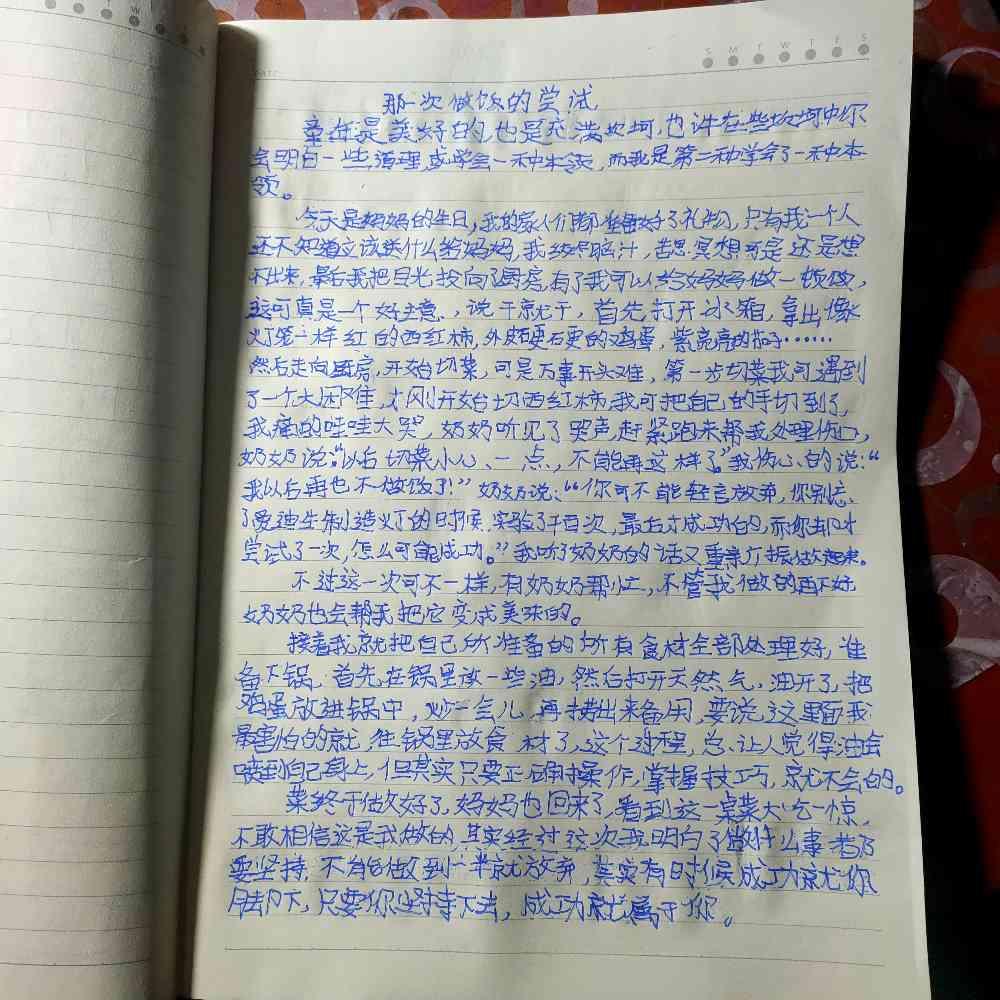 S M T W T F S
那一次做饭的尝试
童年是美好的,也是充满坎坷,也许在些坎坷中你
会明白一些道理,或学会一种本领,而我是第二种学会了一种本
领。
今天是妈妈的生日,我的家人们都准备好了礼物,只有我一个人
还不知道应该送什么给妈妈,我绞尽脑汁,苦思冥想可是还是想
不出来,最后我把目光投向了厨房,有了我可以给妈妈做一顿饭,
这可真是一个好主意,说干就干,首先,打开冰箱,拿出像
灯笼一样红的西红柿,外皮硬石更的鸡蛋,紫亮亮的茄子……
然后走向厨房,开始切菜,可是万事开头难,第一步切菜我可遇到
了一个大困难,才刚开始切西红柿,我可把自己的手切到了,
我痛的哇哇大哭,奶奶听见了哭声,赶紧跑来帮我处理伤口,
奶奶说:“以后切菜小心一点,不能再这样了。”我伤心的说:“
我以后再也不做饭了!”奶奶说:“你可不能轻言放弃,你别忘
了爱迪生制造灯的时候,实验了千百次,最后才成功的,而你却才
尝试了一次,怎么可能成功。”我听了奶奶的话又重亲广振做起来。
不过这一次可不一样,有奶奶帮忙,不管我做的再不好
奶奶也会帮我把它变成美味的。
接着我就把自己所准备的所有食材全部处理好,准
备下锅,首先在锅里放一些油,然后打开天然气,油开了,把
鸡蛋放进锅中,炒一会儿,再捞出来备用,要说,这里面我
最害怕的就往锅里放食材了,这个过程,总让人觉得油会
喷到自己身上,但其实只要正确操作,掌握技巧,就不会的。
菜终于做好了,妈妈也回来了,看到这一桌菜大吃一惊,
不敢相信这是我做的,其实经过这次我明白了做什么事都
要坚持,不能做到一半就放弃,其实有时候成功就在你
脚下,只要你坚持下去,成功就属于你。